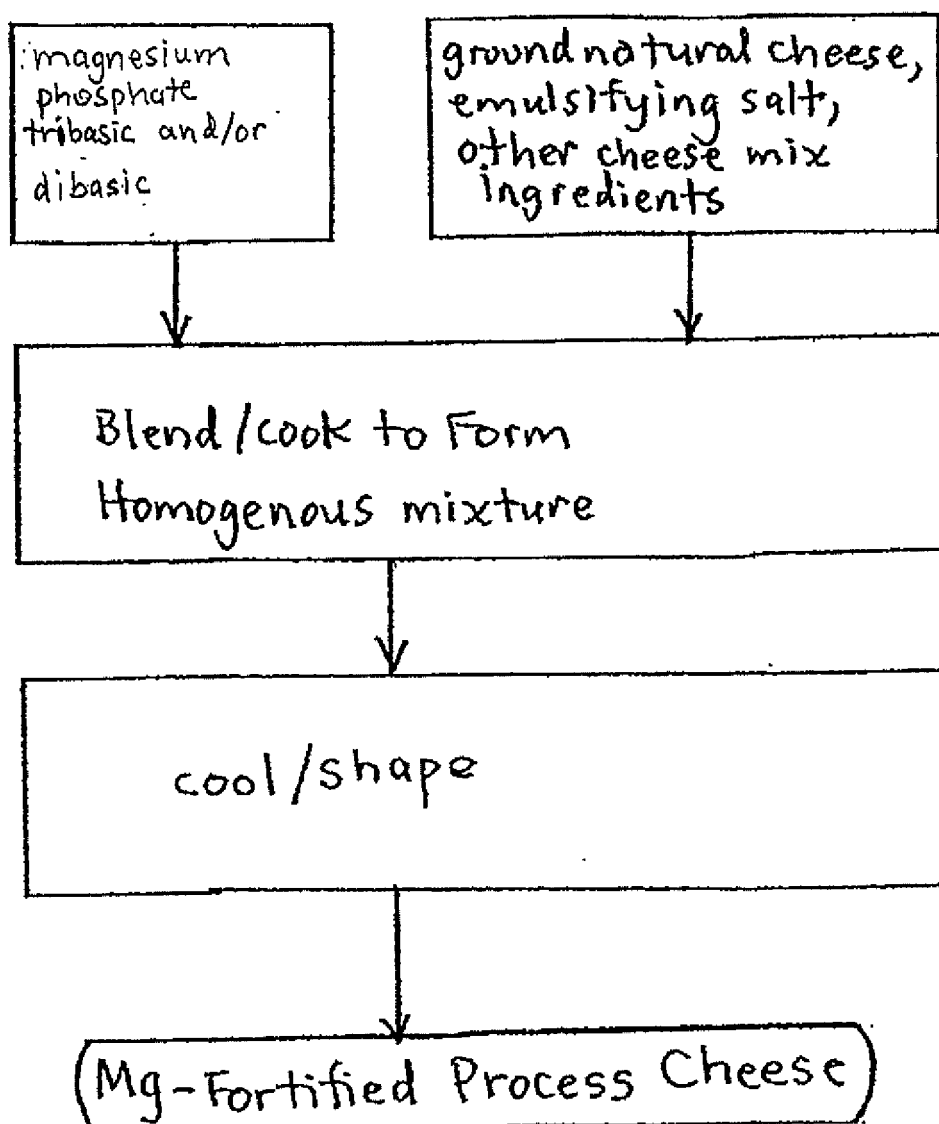 magnesium
phosphate
tribasic and/or
dibasic
ground natural cheese,
emulsifying salt,
other cheese mix
ingredients
Blend/cook to Form
Homogenous mixture
cool/shape
Mg-Fortified Process Cheese